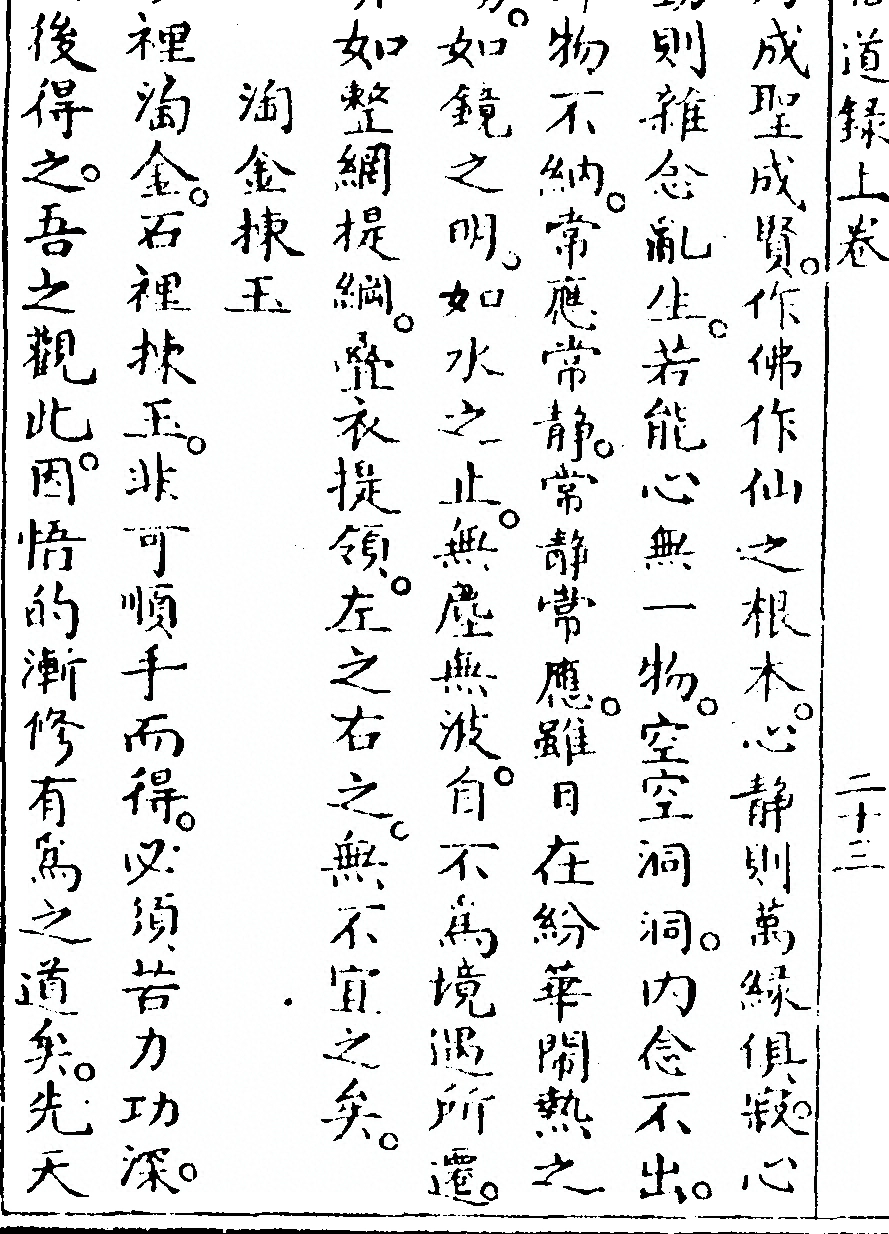 道録上卷 二十三
成聖成賢。作佛作仙之根本。心静則萬緣俱寂。心
則雜念亂生。若能心無一物。空空洞洞。内念不出。
物不納。常應常静。常静常應。雖日在紛華鬧熱之
如鏡之明。如水之止。無塵無波。自不為境遇所遷。
如整網提綱。疊衣提領。左之右之。無不宜之矣。
淘金揀玉
裡淘金。石裡揀玉。非可順手而得。必須苦力功深。
後得之。吾之觀此。因悟的漸修有為之道矣。先天